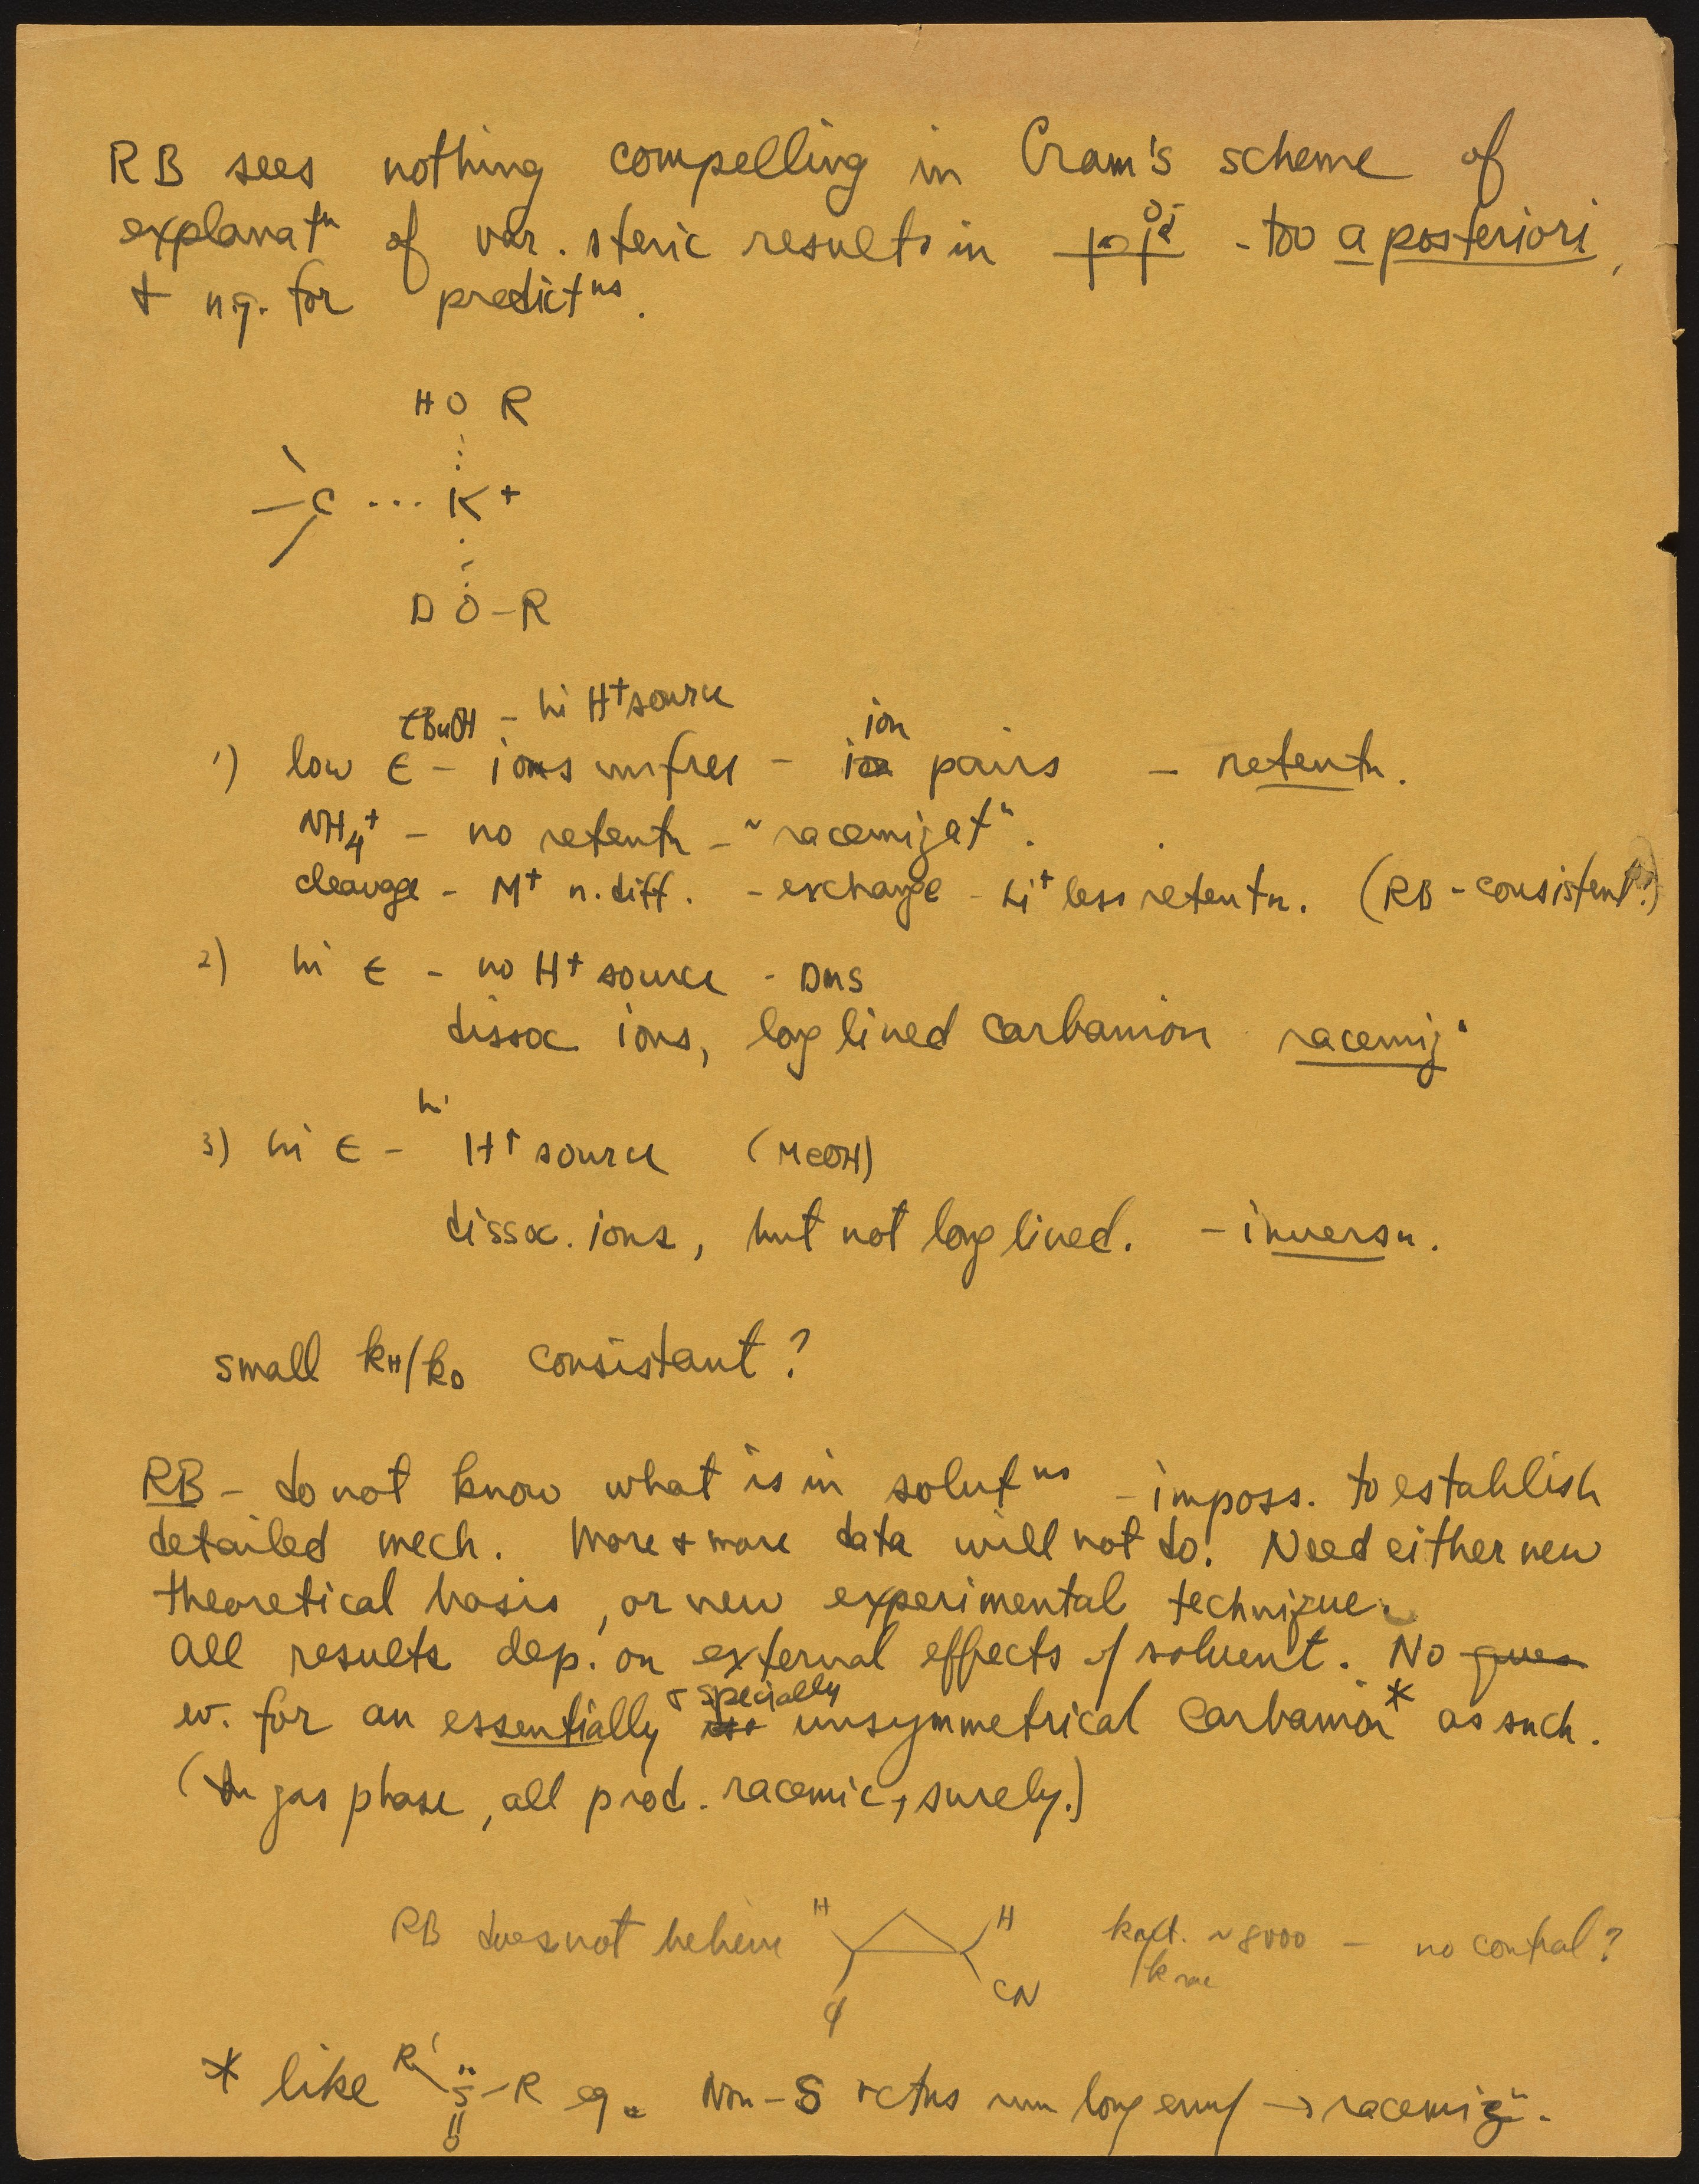 RB sees nothing compelling in Cram's scheme of
explanatn of var. steric results in - too a posteriori,
+ n.g. for predictns.
HO R
C ... K+
D O-R
tBuOH - hi H+ source
ion
1) low ε - ions unfree - pairs - retentn.
NH4+ - no retentn - ~ racemizatn.
cleavage - M+ n. diff. - exchange - Li+ less retentn. (RB - consistent?)
2) hi ε - no H+ source - DMS
dissoc ions, long lived carbanion racemizn
hi
3) hi ε - H+ source (MeOH)
dissoc. ions, but not long lived. - inversn.
small kH/kD consistant?
RB - do not know what is in solutns - imposs. to establish
detailed mech. More + more data will not do! Need either new
theoretical basis, or new experimental technique.
All results dep. on external effects of solvent. No
+ specially
ev. for an essentially unsymmetrical carbanion* as such.
(In gas phase, all prod. racemic, surely.)
RB does not believe H H CN φ k ~8000 - no control?
k rac
* like R' S-R eg. Non-S rctns run long enuf → racemizn.
O